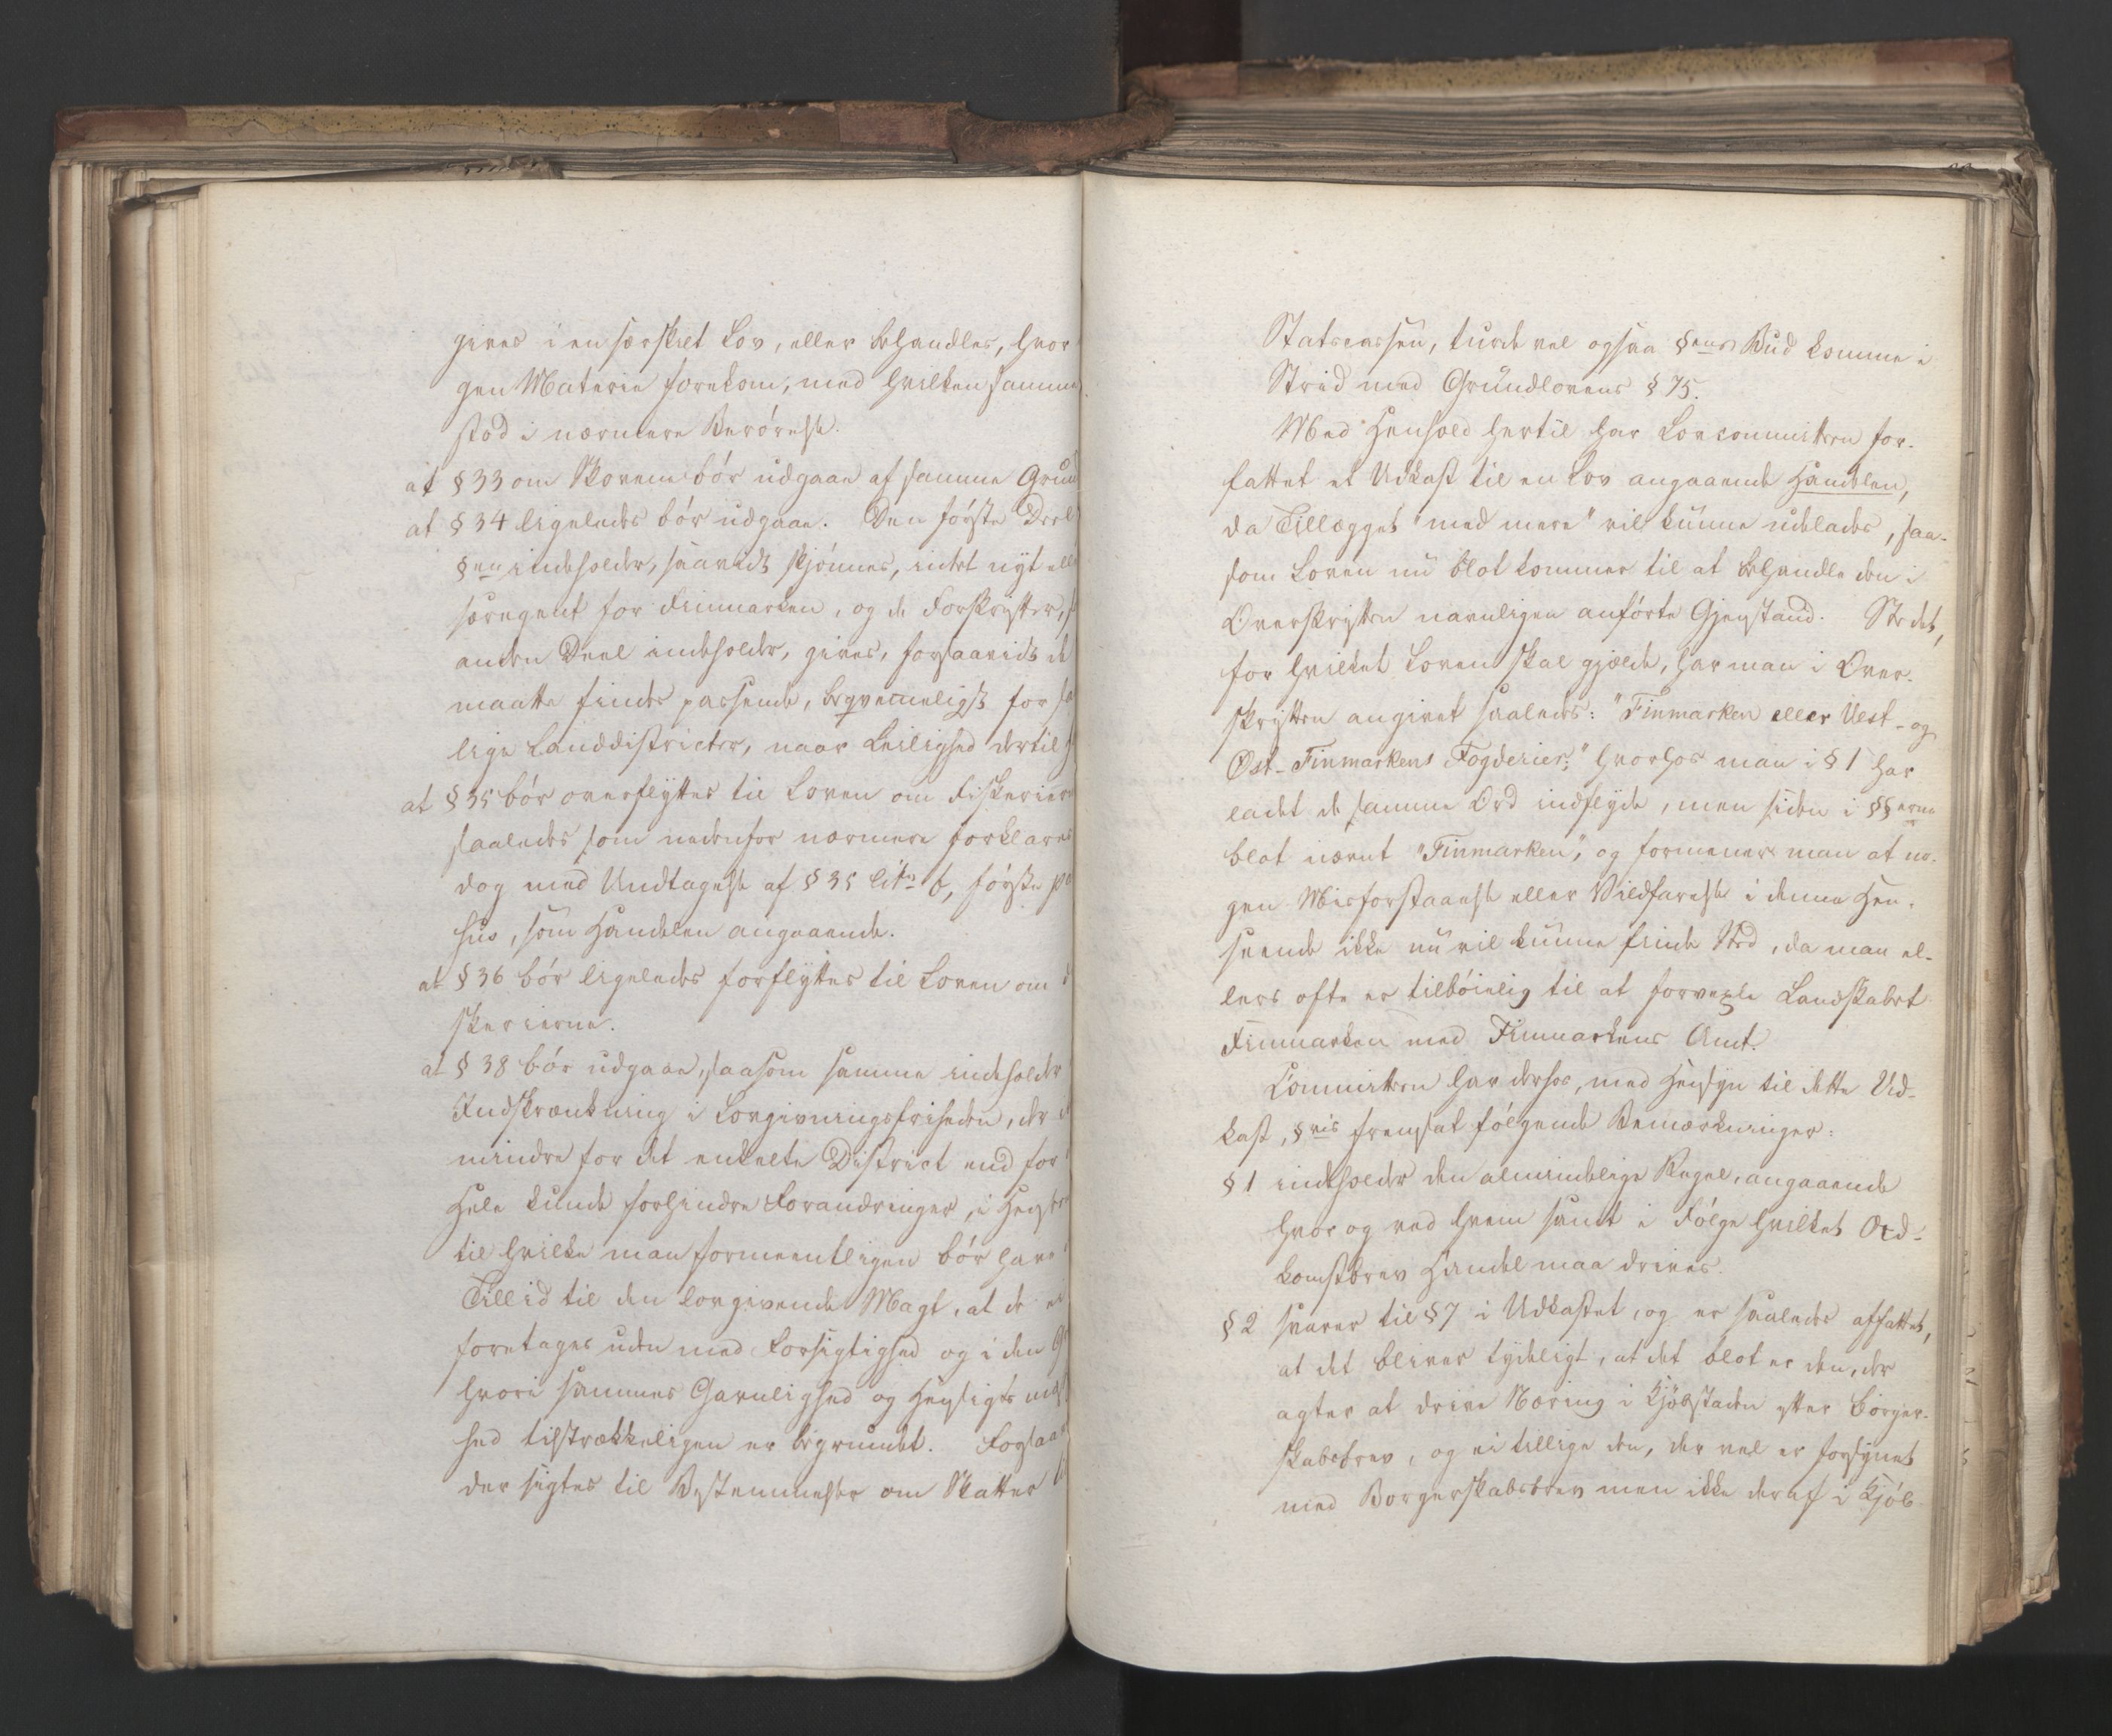 gives i en særskilt Lov, eller behandles, hvor
gen Materie forekom, med hvilken samme
stod i nærmere Berörelse.
at § 33 om Skovene bör udgaae af samme Grund
at § 34 ligeledes bör udgaae. Den förste Deel
§en indeholder, saavidt skjönnes, intet nyt elle
særegent for Finmarken, og de Forskrifter, s
anden Deel indeholder, gives, forsaavidt de
maatte findes passende, beqvemmeligst for sa
lige Landdistricter, naar Leilighed dertil
at § 35 bör overflyttes til Loven om Fiskerierne
saaledes som nedenfor nærmere forklares
dog med Undtagelse af § 35 litr b, förste pa
sus, som Handelen angaaende.
at § 36 bör ligeledes forflyttes til Loven om
skerierne.
at § 38 bör udgaae, saasom samme indeholder
Indskrænkning i Lovgivningsfriheden, der
mindre for det enkelte District end for
Hele kunde forhindre Forandringer, i Hens
til hvilke man formeentligen bör have
Tillid til den lovgivende Magt, at de ei
foretages uden med Forsigtighed og i den G
hvori sammes Gavnlighed og Hensigtsmæs
hed tilstrækkeligen er begrundet. Forsaa
der sigtes til Bestemmelser om Skatter ti
Statscassen, turde vel ogsaa §ens Bud komme i
Strid med Grundlovens § 75.
Med Henhold hertil har Lovcommitteen for-
fattet et Udkast til en Lov angaaende Handelen,
da Tillægget "med mere" vil kunne udelades, saa-
som Loven nu blot kommer til at behandle den i
Overskriften navnligen anförte Gjenstand. Stedet,
for hvilket Loven skal gjælde, har man i Over-
skriften angivet saaledes: "Finmarken eller Vest- og
Öst-Finmarkens Fogderier;" hvorhos man i § 1 har
ladet de samme Ord indflyde, men siden i §§erne
blot nævnt "Finmarken", og formener man at no-
gen Misforstaaelse eller Vildfarelse i denne Hen-
seende ikke nu vil kunne finde Sted, da man el-
lers ofte er tilböielig til at forvexle Landskabet
Finmarken med Finmarkens Amt.
Committeen har derhos, med Hensyn til dette Ud-
kast, §vis fremsat fölgende Bemærkninger:
§ 1 indeholder den almindelige Regel, angaaende
hvor og ved hvem samt i Fölge hvilket Ad-
komstbrev Handel maa drives.
§ 2 svarer til § 7 i Udkastet, og er saaledes affattet,
at det bliver tydeligt, at det blot er den, der
agter at drive Næring i Kjöbstaden efter Borger-
skabsbrev, og ei tillige den, der vel er forsynet
med Borgerskabsbrev men ikke deraf i Kjöb